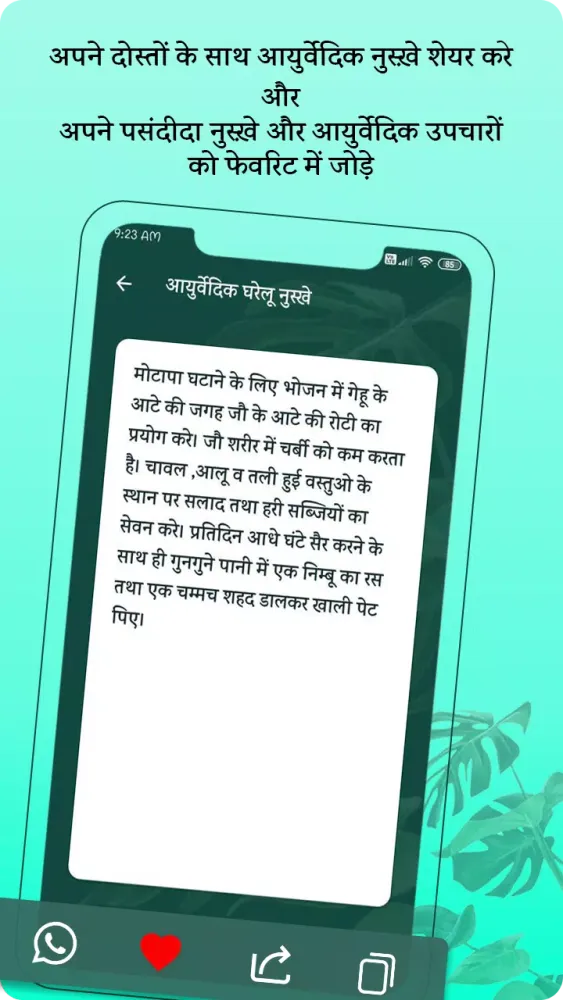 अपने दोस्तों के साथ आयुर्वेदिक नुस्ख़े शेयर करे
और
अपने पसंदीदा नुस्ख़े और आयुर्वेदिक उपचारों
को फेवरिट में जोड़े
9:23 AM
85
आयुर्वेदिक घरेलू नुस्खे
मोटापा घटाने के लिए भोजन में गेहू के
आटे की जगह जौ के आटे की रोटी का
प्रयोग करे। जौ शरीर में चर्बी को कम करता
है। चावल ,आलू व तली हुई वस्तुओ के
स्थान पर सलाद तथा हरी सब्जियों का
सेवन करे। प्रतिदिन आधे घंटे सैर करने के
साथ ही गुनगुने पानी में एक निम्बू का रस
तथा एक चम्मच शहद डालकर खाली पेट
पिए।